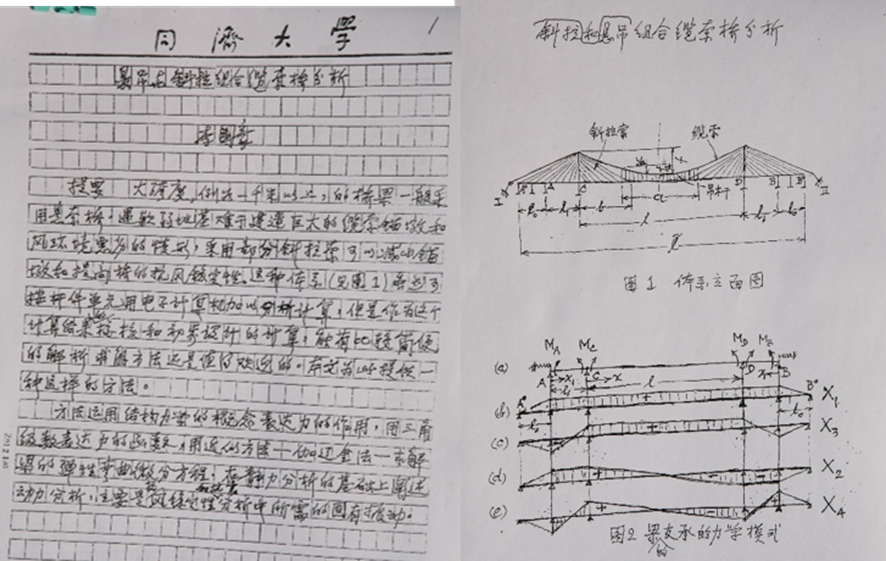 1
同濟大學
悬吊与斜拉组合缆索桥分析
李国豪
提要 大跨度,例如一千米以上,的桥梁一般采
用悬索桥。遇软弱地基难于建造巨大的缆索锚碇和
风环境恶劣的情形,采用部分斜拉索可以减小锚
碇和提高桥的抗风稳定性。这种体系(见图1)
按杆件单元用电子计算机加以分析计算,但是作为这个
计算结果校核和初步设计的计算,能有比较简便
的解析求解方法还是值得欢迎的。本文为此提供一
种这样的方法。
方法运用结构力学的概念表达力的作用,用三角
级数表达力的函数,用近似方法—伽辽金法—求解
梁的弹性弯曲微分方程。在静力分析的基础上阐述
动力分析,主要是风稳定性分析中所需的固有振动。
斜拉和悬吊组合缆索桥分析
斜拉索
缆索
吊杆
I A C D B II
a
b
l
图1 体系立面图
M_A M_C M_D M_B
(a)
A C D B
x
l
(b) X1
(c) X3
(d) X2
(e) X4
图2 梁支承的力学模式
的